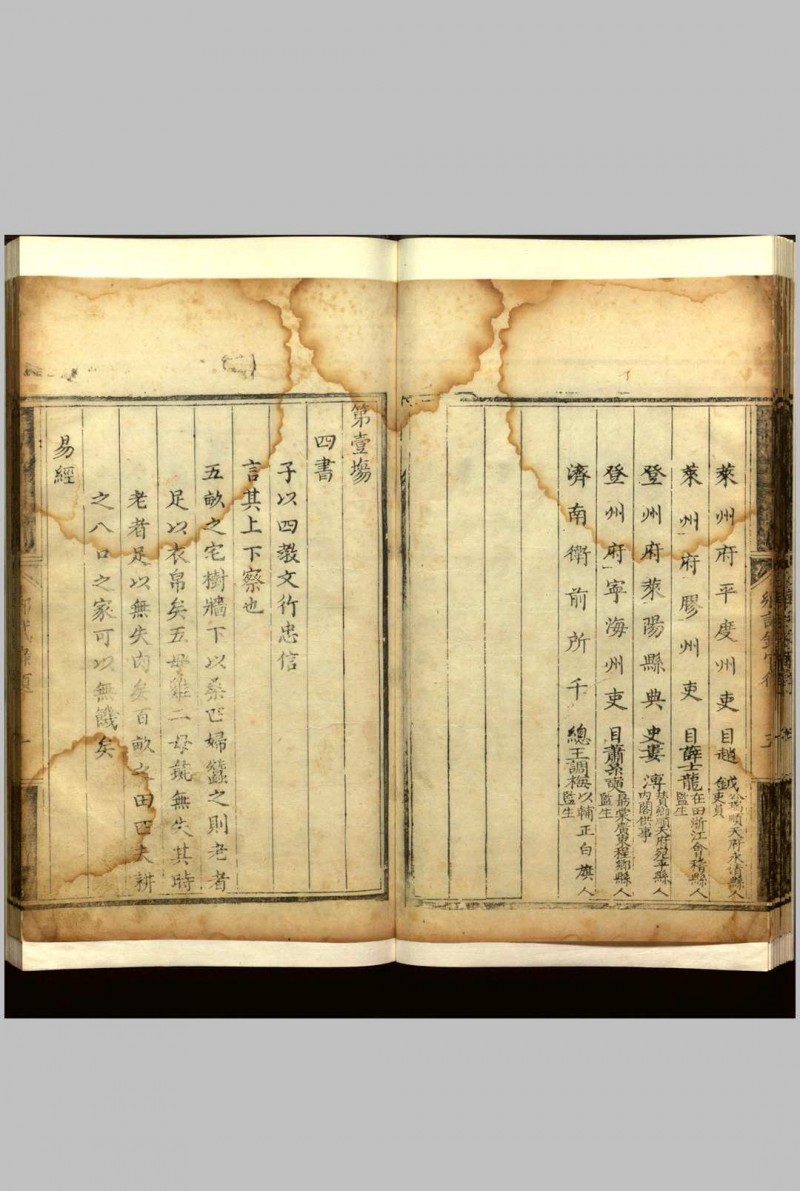 萊州府平度州吏目趙 鉞公瑒順天府永清縣人
吏員
萊州府膠州吏目薛士龍在田浙江會稽縣人
監生
登州府萊陽縣典史婁 溥順天府宛平縣人
內閣供事
登州府寧海州吏目蕭 廣東程鄉縣人
監生
濟南衛前所千總王調梅以輔正白旗人
監生
第壹場
四書
子以四教文行忠信
言其上下察也
五畝之宅樹牆下以桑匹婦蠶之則老者
足以衣帛矣五母雞二母彘無失其時
老者足以無失肉矣百畝之田匹夫耕
之八口之家可以無饑矣
易經